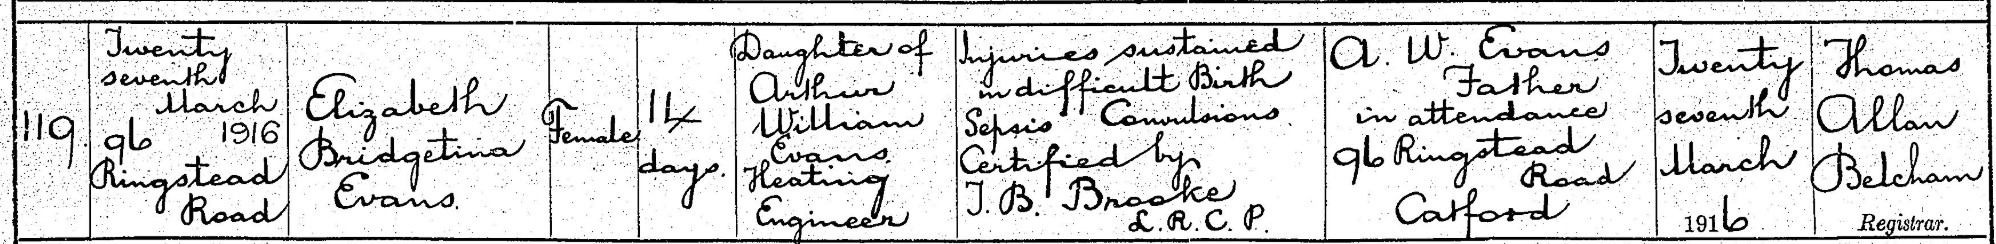 119
Twenty
seventh
March
1916
96
Ringstead
Road
Elizabeth
Bridgetina
Evans.
Female
14
days.
Daughter of
Arthur
William
Evans.
Heating
Engineer
Injuries sustained
in difficult Birth
Sepsis Convulsions.
Certified by
T. B. Brooke
L. R. C. P.
A. W. Evans
Father
in attendance
96 Ringstead
Road
Catford
Twenty
seventh
March
1916
Thomas
Allan
Belcham
Registrar.